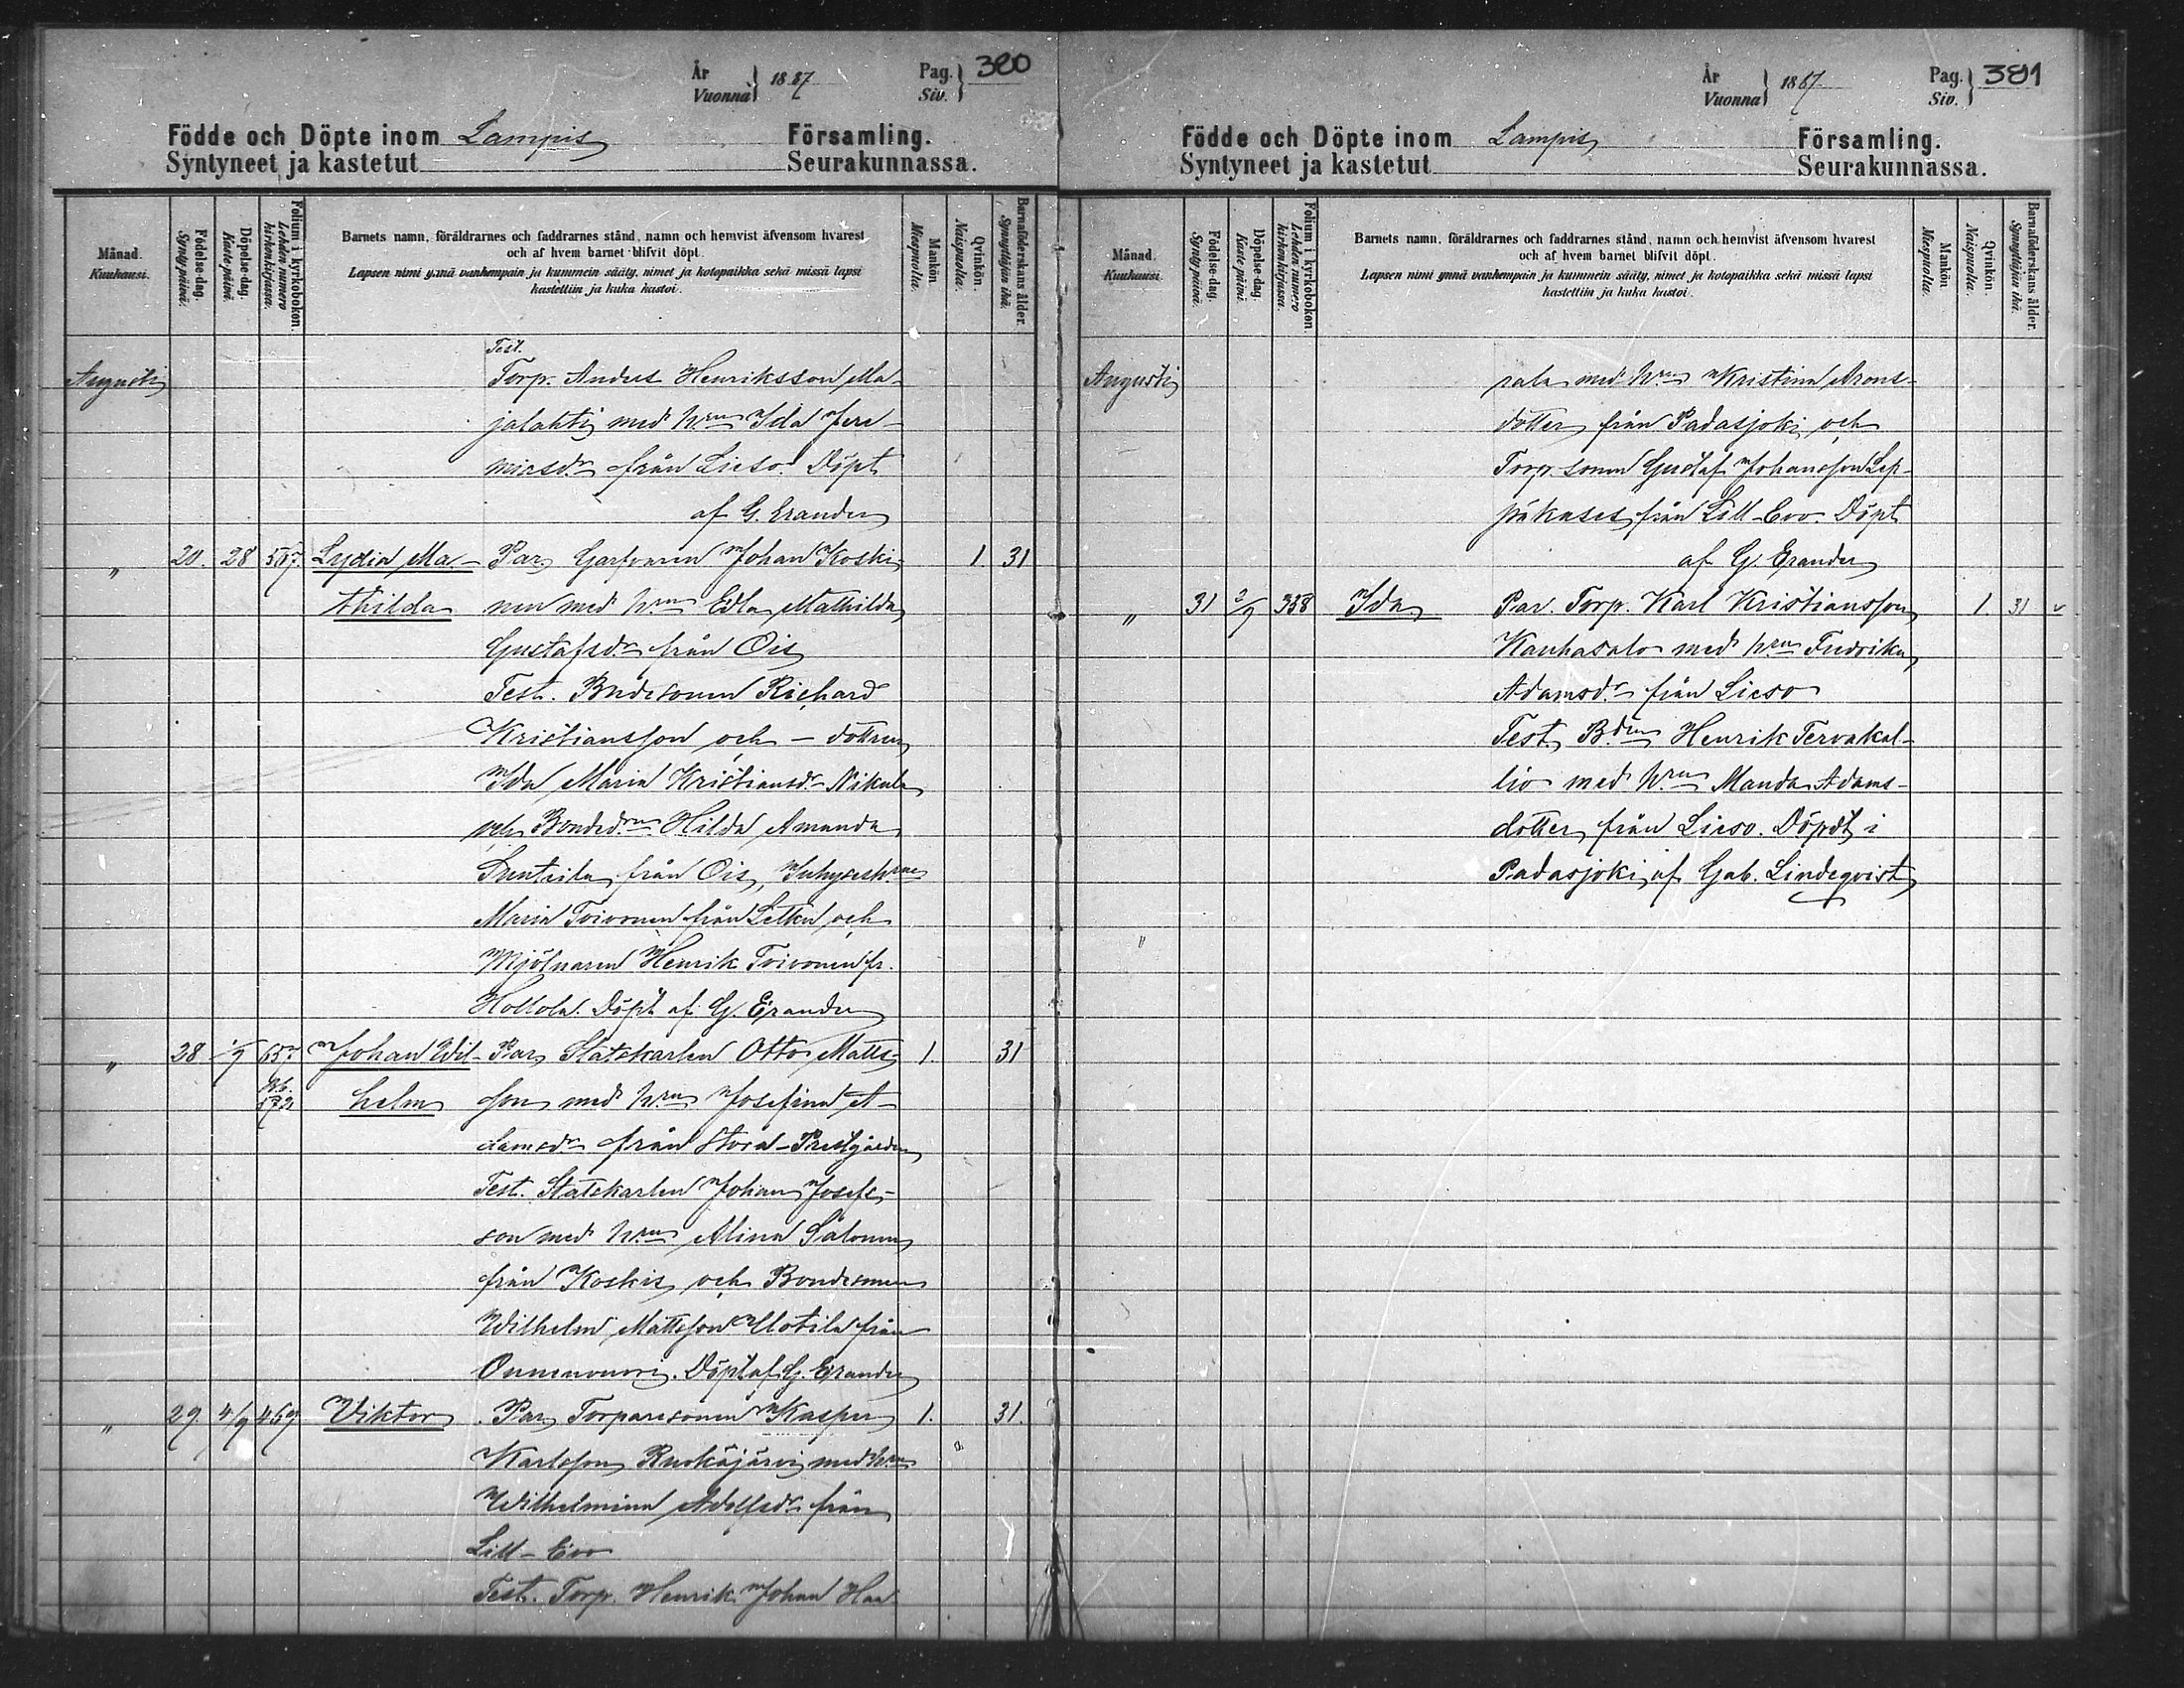 År
Vuonna
1887
Pag.
Siv.
380
Födde och Döpte inom Lampis Församling.
Syntyneet ja kastetut Seurakunnassa.
Månad.
Kuukausi.
Födelse-dag.
Synty päivä.
Döpelse-dag.
Kaste päivä.
Folium i kyrkoboken.
Lehden numero
kirkonkirjassa.
Barnets namn, föräldrarnes och faddrarnes stånd, namn och hemvist äfvensom hvarest
och af hvem barnet blifvit döpt.
Lapsen nimi ynnä vanhempain ja kummein sääty, nimet ja kotopaikka sekä missä lapsi
kastettiin ja kuka kastoi.
Mankön.
Miespuolia.
Qvinkön.
Naispuolia.
Barnaföderskans ålder.
Synnyttäjän ikä.
Test.
Augusti Torp. Anders Henriksson Ma-
jalahti med h:run Ida Jere-
miasdr från Lieso. Döpt
af G. Erander
" 20. 28 587. Lydia Ma- Par. Garfvaren Johan Koski- 1. 31
thilda nen med h:run Edla Mathilda
Gustafsdr från Ois
Test. Bondesonen Richard
Kristiansson och - dottren
Ida Maria Kristiansdr Nikula
och Bonded:ren Hilda Amanda
från Ois,
Maria Toivonen från Letku och
Mjölnaren Henrik Toivonen fr.
Hollola. Döpt af G. Erander
" 28 1/9 65 Johan Wil- Par. Statskarlen Otto Matts- 1. 31
572 helm son med h:run Josefina A-
damsdr från Stora-Prestgården
Test. Statskarlen Johan Josefs-
son med h:run Alina Salonen
från Koskis och Bondesonen
Wilhelm Mattsson Uotila från
Döpt af G. Erander
" 29. 4/9 469 Viktor Par. Torparesonen Kasper 1. 31.
Karlsson Ruokojärvi med h:run
Wilhelmina Adolfsdr från
Lill-Evo
Test. Torp. Henrik Johan Haa
År
Vuonna
1887
Pag.
Siv.
381
Födde och Döpte inom Lampis Församling.
Syntyneet ja kastetut Seurakunnassa.
Månad.
Kuukausi.
Födelse-dag.
Synty päivä.
Döpelse-dag.
Kaste päivä.
Folium i kyrkoboken.
Lehden numero
kirkonkirjassa.
Barnets namn, föräldrarnes och faddrarnes stånd, namn och hemvist äfvensom hvarest
och af hvem barnet blifvit döpt.
Lapsen nimi ynnä vanhempain ja kummein sääty, nimet ja kotopaikka sekä missä lapsi
kastettiin ja kuka kastoi.
Mankön.
Miespuolia.
Qvinkön.
Naispuolia.
Barnaföderskans ålder.
Synnyttäjän ikä.
Augusti rala med h:run Kristina Arons-
dotter från Padasjoki och
Torp.sonen Gustaf Johansson Lep-
från Lill-Evo. Döpt
af G. Erander
" 31 2/9 338 Ida Par. Torp. Karl Kristiansson 1. 31 v
Kauhasalo med h:run Fredrika
Adamsdr från Lieso
Test. B:den Henrik Tervakal-
lio med h:run Manda Adams-
dotter från Lieso. Döpdt i
Padasjoki af Gab. Lindeqvist
"